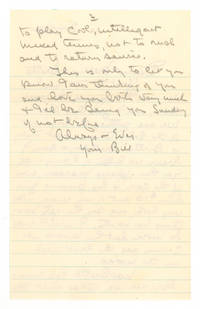 2
to play cool, intelligent
mixed tennis, not to rush
and to return service.
This is only to let you
know I am thinking of you
and love you both very much
& I'll be seeing you Sunday
if not before.
Always & Ever
Your Bill